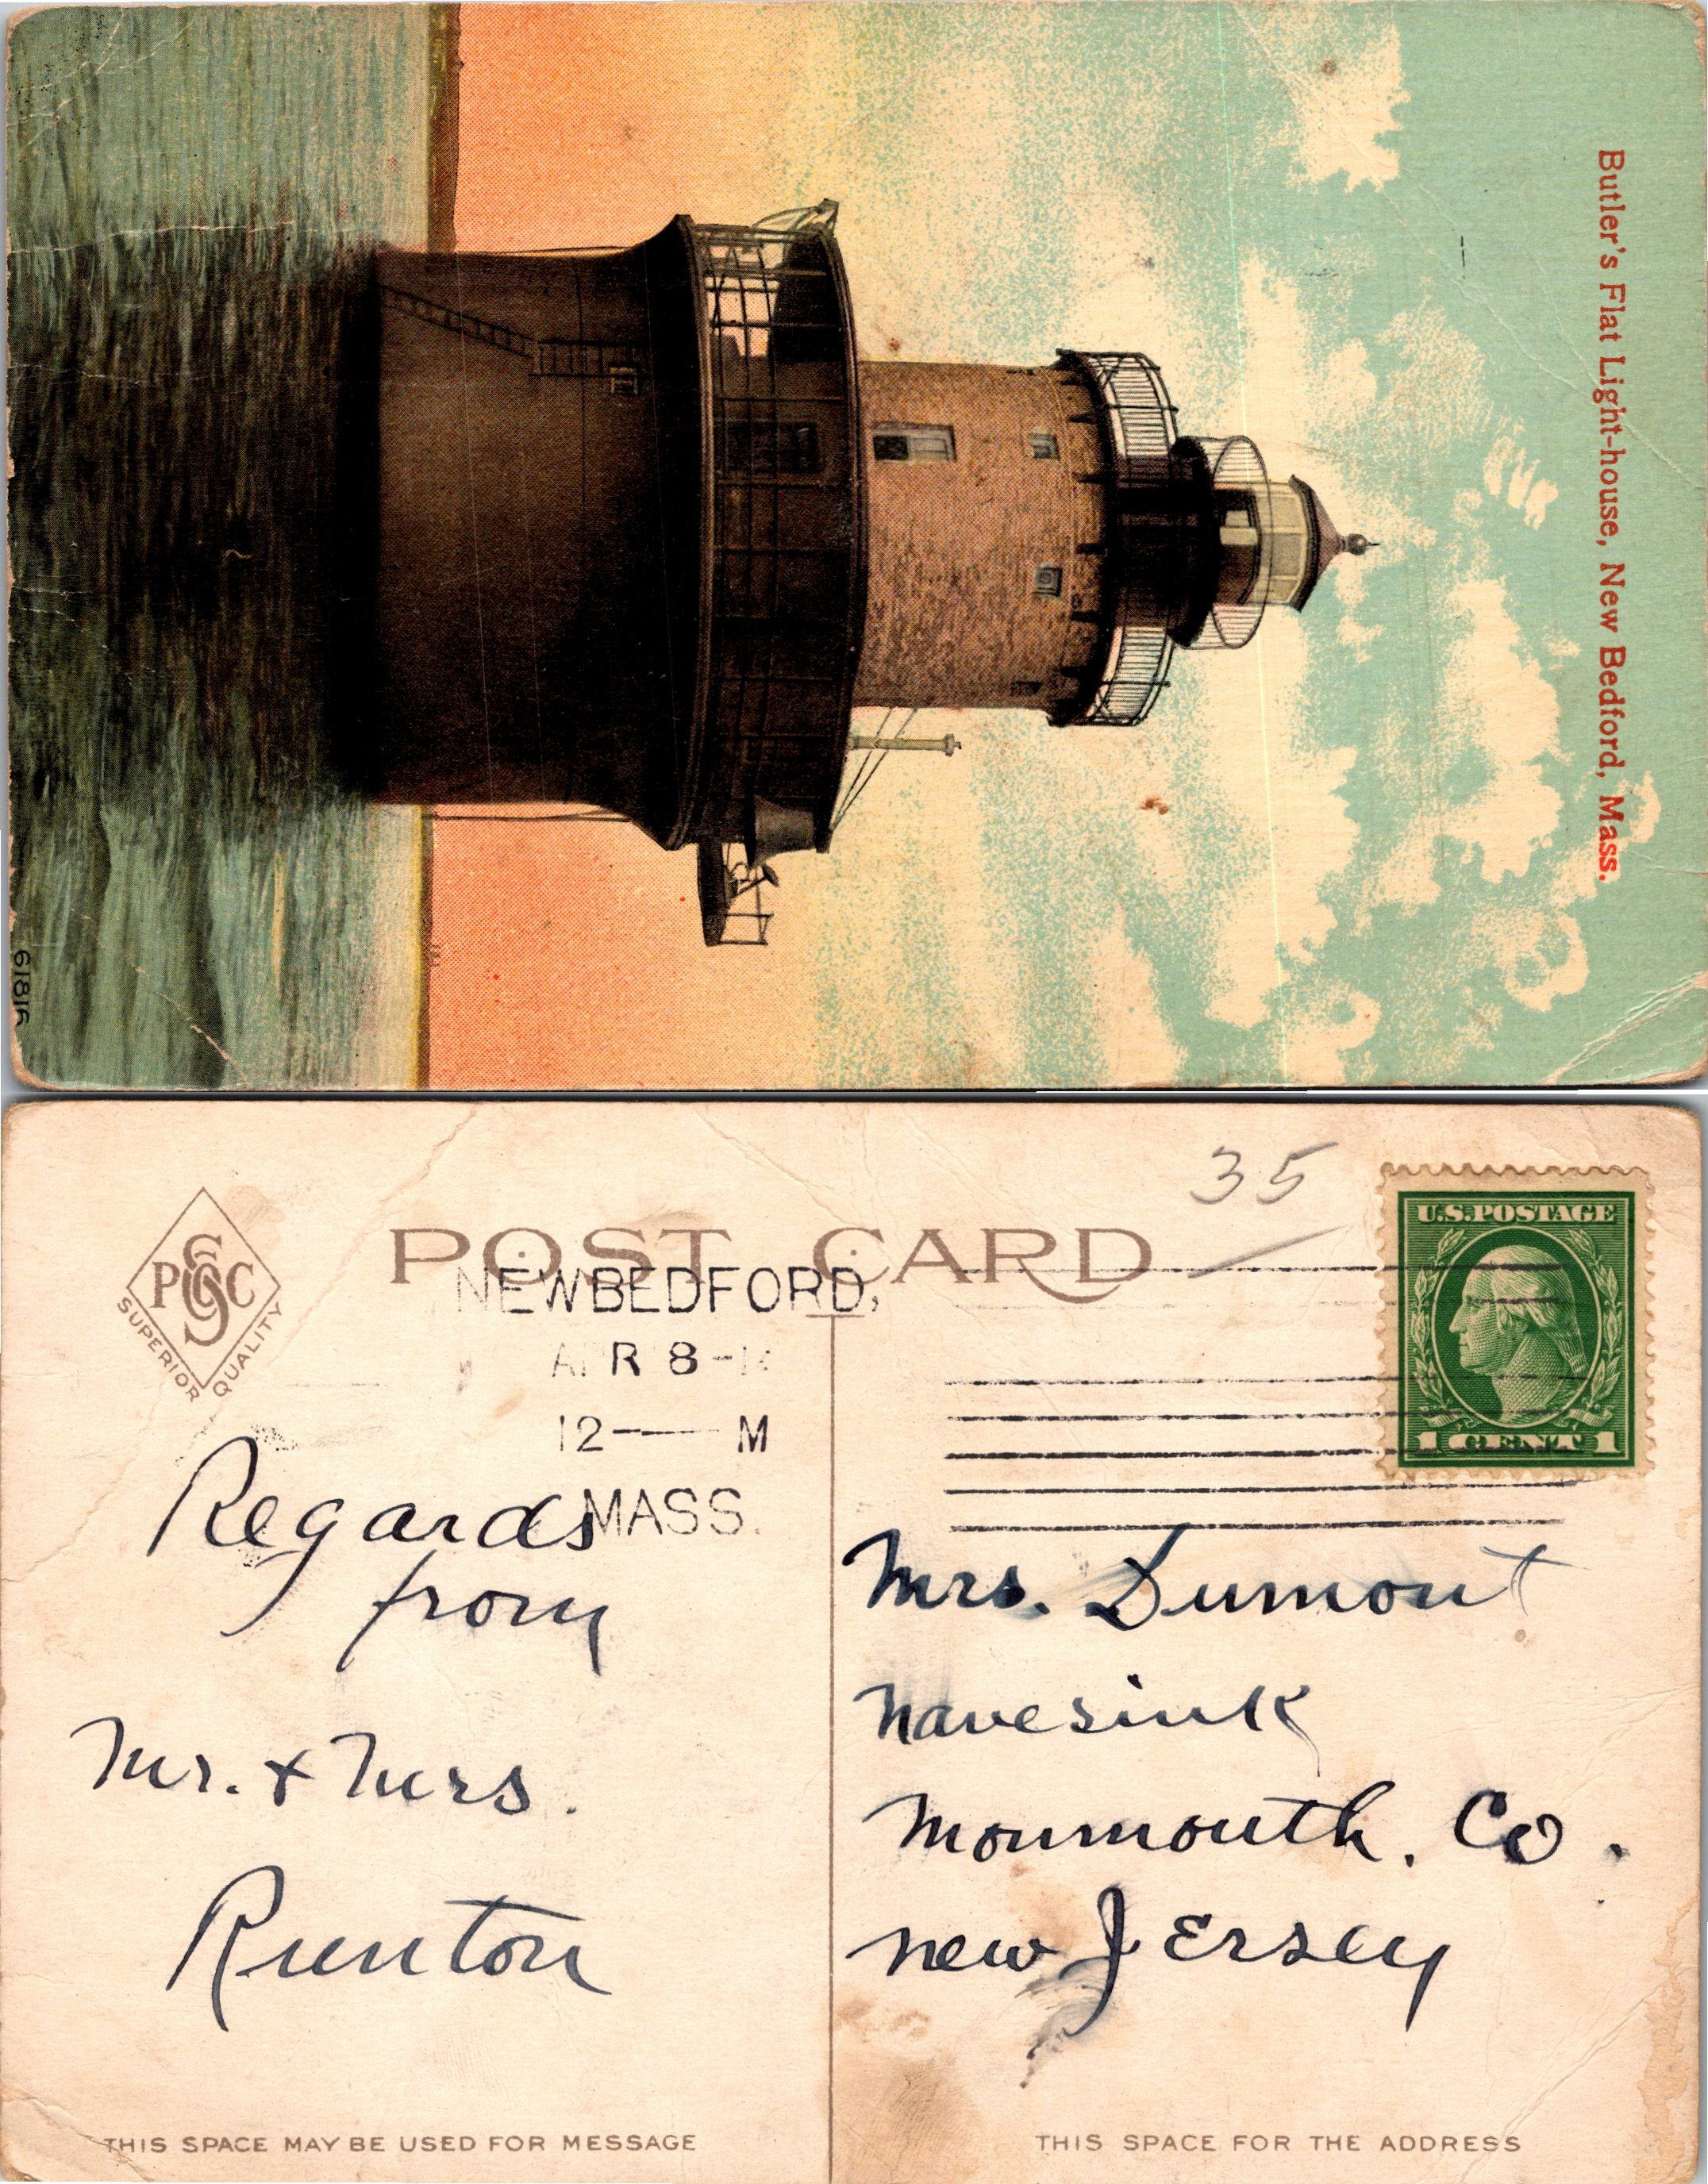 Butler's Flat Light-house, New Bedford, Mass.
61816
35
POST CARD
PSCC
SUPERIOR QUALITY
U.S.POSTAGE
1 CENT 1
NEW BEDFORD,
APR 8-1
12—M
MASS.
Regards
from
Mr. & Mrs.
Runton
Mrs. Dumont
Navesink
Monmouth. Co.
New Jersey
THIS SPACE MAY BE USED FOR MESSAGE
THIS SPACE FOR THE ADDRESS